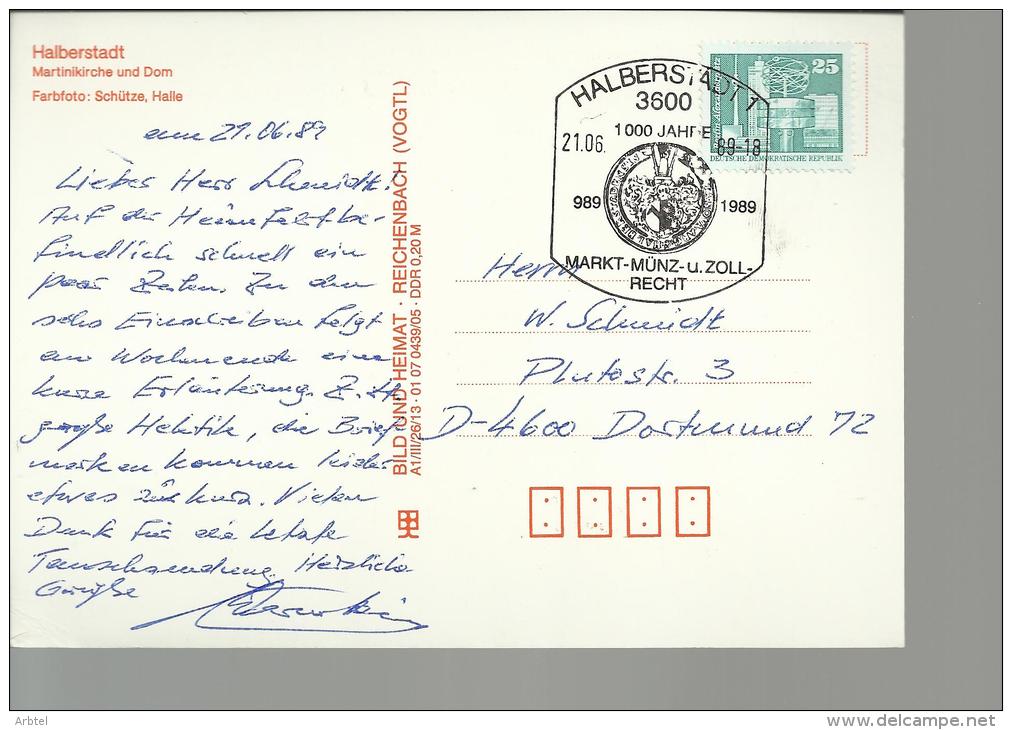 Halberstadt
Martinikirche und Dom
Farbfoto: Schütze, Halle
am 21.06.89
Lieber Herr Schmidt!
Auf der Heimfahrt be-
findlich schnell ein
paar Zeilen. Zu den
sechs Einschreiben folgt
am Wochenende eine
kurze Erläuterung. Z. Zt.
große Hektik, die Brief-
marken kommen leider
etwas zu kurz. Vielen
Dank für die letzte
Tauschsendung. Herzliche
Grüße
BILD UND HEIMAT · REICHENBACH (VOGTL)
A1/III/26/13 · 01 07 0439/05 · DDR 0,20 M
HALBERSTADT 1
3600
1000 JAHRE
21.06. 89-18
989 1989
MARKT-MÜNZ-u. ZOLL-
RECHT
25
DEUTSCHE DEMOKRATISCHE REPUBLIK
Herrn
W. Schmidt
Plutostr. 3
D-4600 Dortmund 72
Arbtel
www.delcampe.net